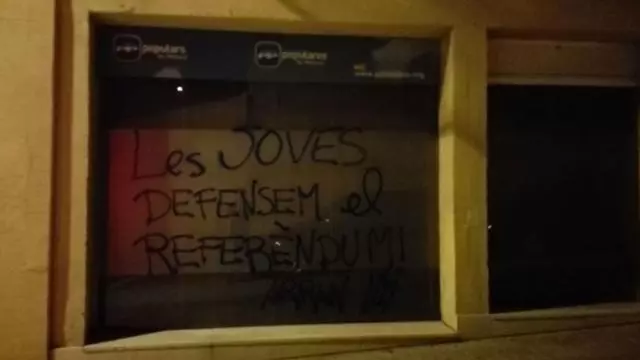 populars
populares
Les JOVES
DEFENSEM el
REFERÈNDUM!
ARRAN